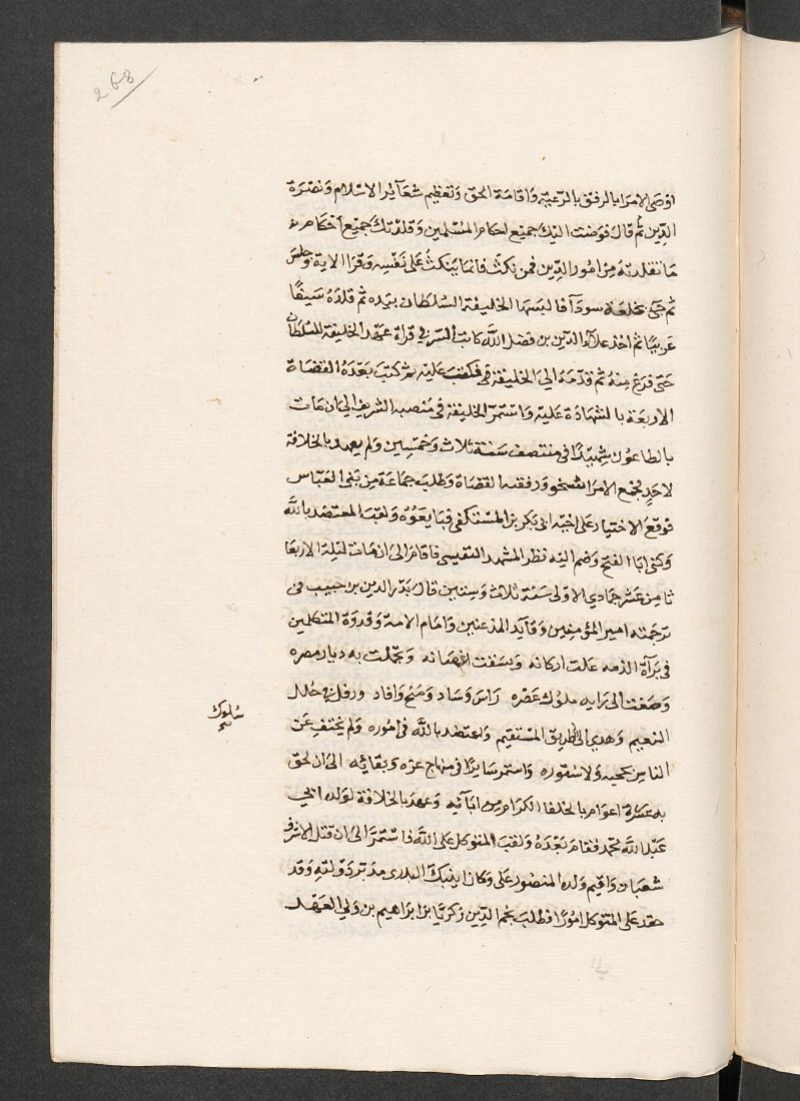 268
اوصى الامرا بالرفق بالرعية واقامة الحق وتعظيم شعاير الاسلام ونصرة
الدين ثم قال فوضت اليك جميع احكام المسلمين وقلدتك جميع احكام مد
ما تقلدته من امور الدين فمن نكث فانما ينكث على نفسه وقرا الاية وجلس
ثم جى بخلعة سودآ فالبسها الخليفة السلطان بيده ثم قلده سيفا
عربيا ثم اخذ علاء الدين بن فضل الله كاتب السر في قراة عهد الخليفة للسلطان
حتى فرغ منه ثم قدمه الى الخليفة فكتب عليه ثم كتب بعده القضاة
الاربعة بالشهادة عليه واستمر الخليفة في منصبه الشريف الى ان مات
بالطاعون شهيدا في منتصف سنة ثلاث وخمسين ولم يعهد بالخلافة
لاحد فجمع الامرا الشيخو ورفقته القضاة وطلب جماعة من بنى العباس
فوقع الاختيار على اخيه ابى بكر بن المستكفى فبايعوه ولقب المعتضد بالله
وكنى ابا الفتح وضم اليه نظر المشهد النفيسى فاقام الى ان مات ليلة الاربعا
ثامن عشر جمادي الاولى سنة ثلاث وستين قال بدر الدين بن حبيب في
ترجمته امير المؤمنين وقايد المذعنين وامام الامة وقدوة المتكلمين
في برآة الذمه علت اركانه وبسقت اغصانه وتجملت به ديار مصره
وصغت الى رايه ملوك عصره راس وساد ومنح وافاد ورفل في حلل
النعيم وهدي الى طريق المستقيم واعتضد بالله في اموره ولم يختف عن
الناس بحجبه ولا ستوره واستمر سايرا في منهاج عزه وبقائه الى ان لحق
به عشرة اعوام بالخلفا الكرام من ابآئه وعهد بالخلافة لولده ابى
عبد الله محمد فقام بعده ولقب المتوكل على الله فاستمر الى ان قتل الاشرف
شعبان واقيم ولده المنصور على وكان اينبك البدرى مدبر دولته وقد
حقد على المتوكل امورا فطلب نجم الدين زكريا بن ابراهيم بن ولي العهد
سلوك